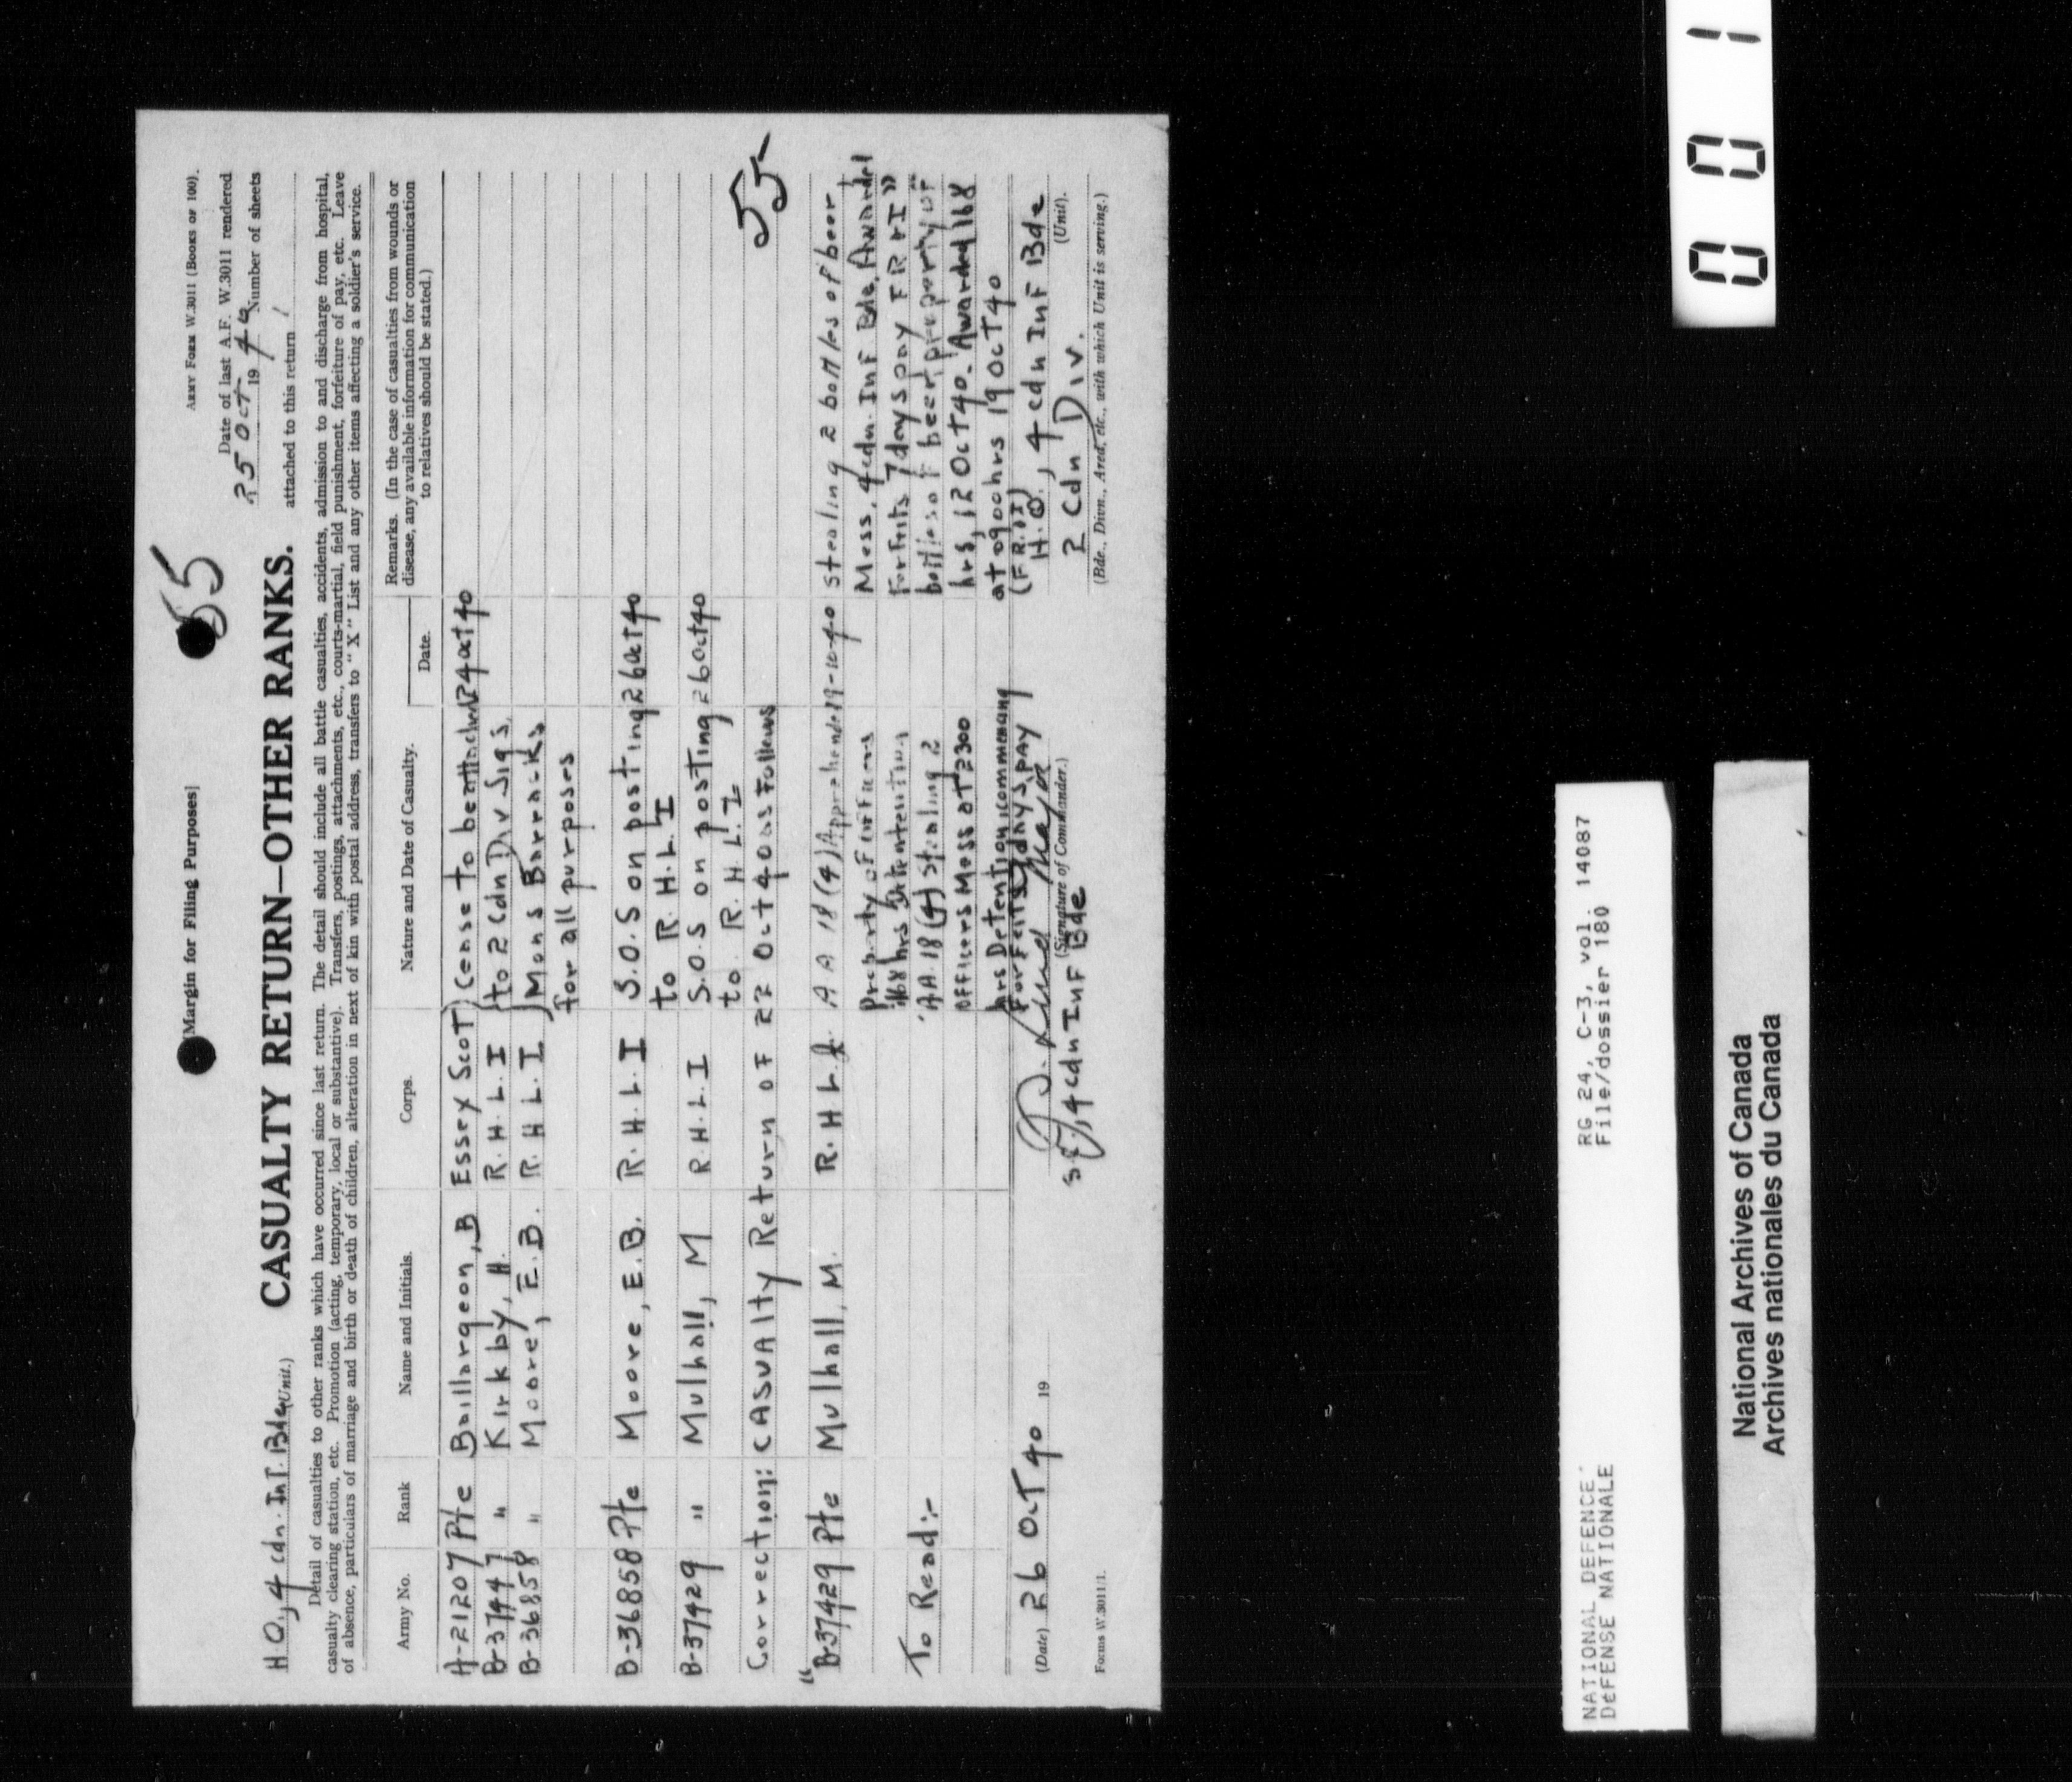 [Margin for Filing Purposes]
55
ARMY FORM W.3011 (BOOKS OF 100).
H.Q, 4 cdn. Inf. Bde (Unit.)
CASUALTY RETURN—OTHER RANKS.
Date of last A.F. W.3011 rendered
25 Oct 19 40 Number of sheets
attached to this return 1
Detail of casualties to other ranks which have occurred since last return. The detail should include all battle casualties, accidents, admission to and discharge from hospital,
casualty clearing station, etc. Promotion (acting, temporary, local or substantive). Transfers, postings, attachments, etc., courts-martial, field punishment, forfeiture of pay, etc. Leave
of absence, particulars of marriage and birth or death of children, alteration in next of kin with postal address, transfers to "X" List and any other items affecting a soldier's service.
Army No. Rank Name and Initials. Corps. Nature and Date of Casualty. Date. Remarks. (In the case of casualties from wounds or
disease, any available information for communication
to relatives should be stated.)
A-21207 Pte Baillargeon, B Essex Scot) Cease to be attached 24 Oct 40
B-37447 " Kirkby, H. R.H.L.I } to 2 Cdn Div Sigs.
B-36858 " Moore, E.B. R.H.L.I ) Mons Barracks
for all purposes
B-36858 Pte Moore, E.B. R.H.L.I S.O.S on posting 26 Oct 40
to R.H.L.I
B-37429 " Mulhall, M R.H.L.I S.O.S on posting 26 Oct 40
to R.H.L.I
Correction: Casualty Return of 22 Oct 40 as Follows
55
"B-37429 Pte Mulhall, M. R.H.L.I. A A 18 (4) Apprehended 19-10-40 stealing 2 bottles of beer
property of officers Mess, 4 cdn. Inf Bde, Awarded
168 hrs Detention Forfeits 7 days pay F R & I"
To Read:- "A A. 18 (4) Stealing 2 bottles of beer, property of
officers Mess at 2300 hrs, 12 Oct 40. Awarded 168
hrs Detention commencing at 0900 hrs 19 Oct 40
Forfeits 7 days pay (F R & I)
Major
(Signature of Commander.)
4 cdn Inf Bde
H.Q., 4 cdn Inf Bde
(Unit).
2 Cdn Div.
(Date) 26 Oct 40 19
(Bde., Divn., Area, etc., with which Unit is serving.)
Forms W.3011/1.
NATIONAL DEFENCE
DéFENSE NATIONALE
RG 24, C-3, vol. 14087
File/dossier 180
National Archives of Canada
Archives nationales du Canada
001